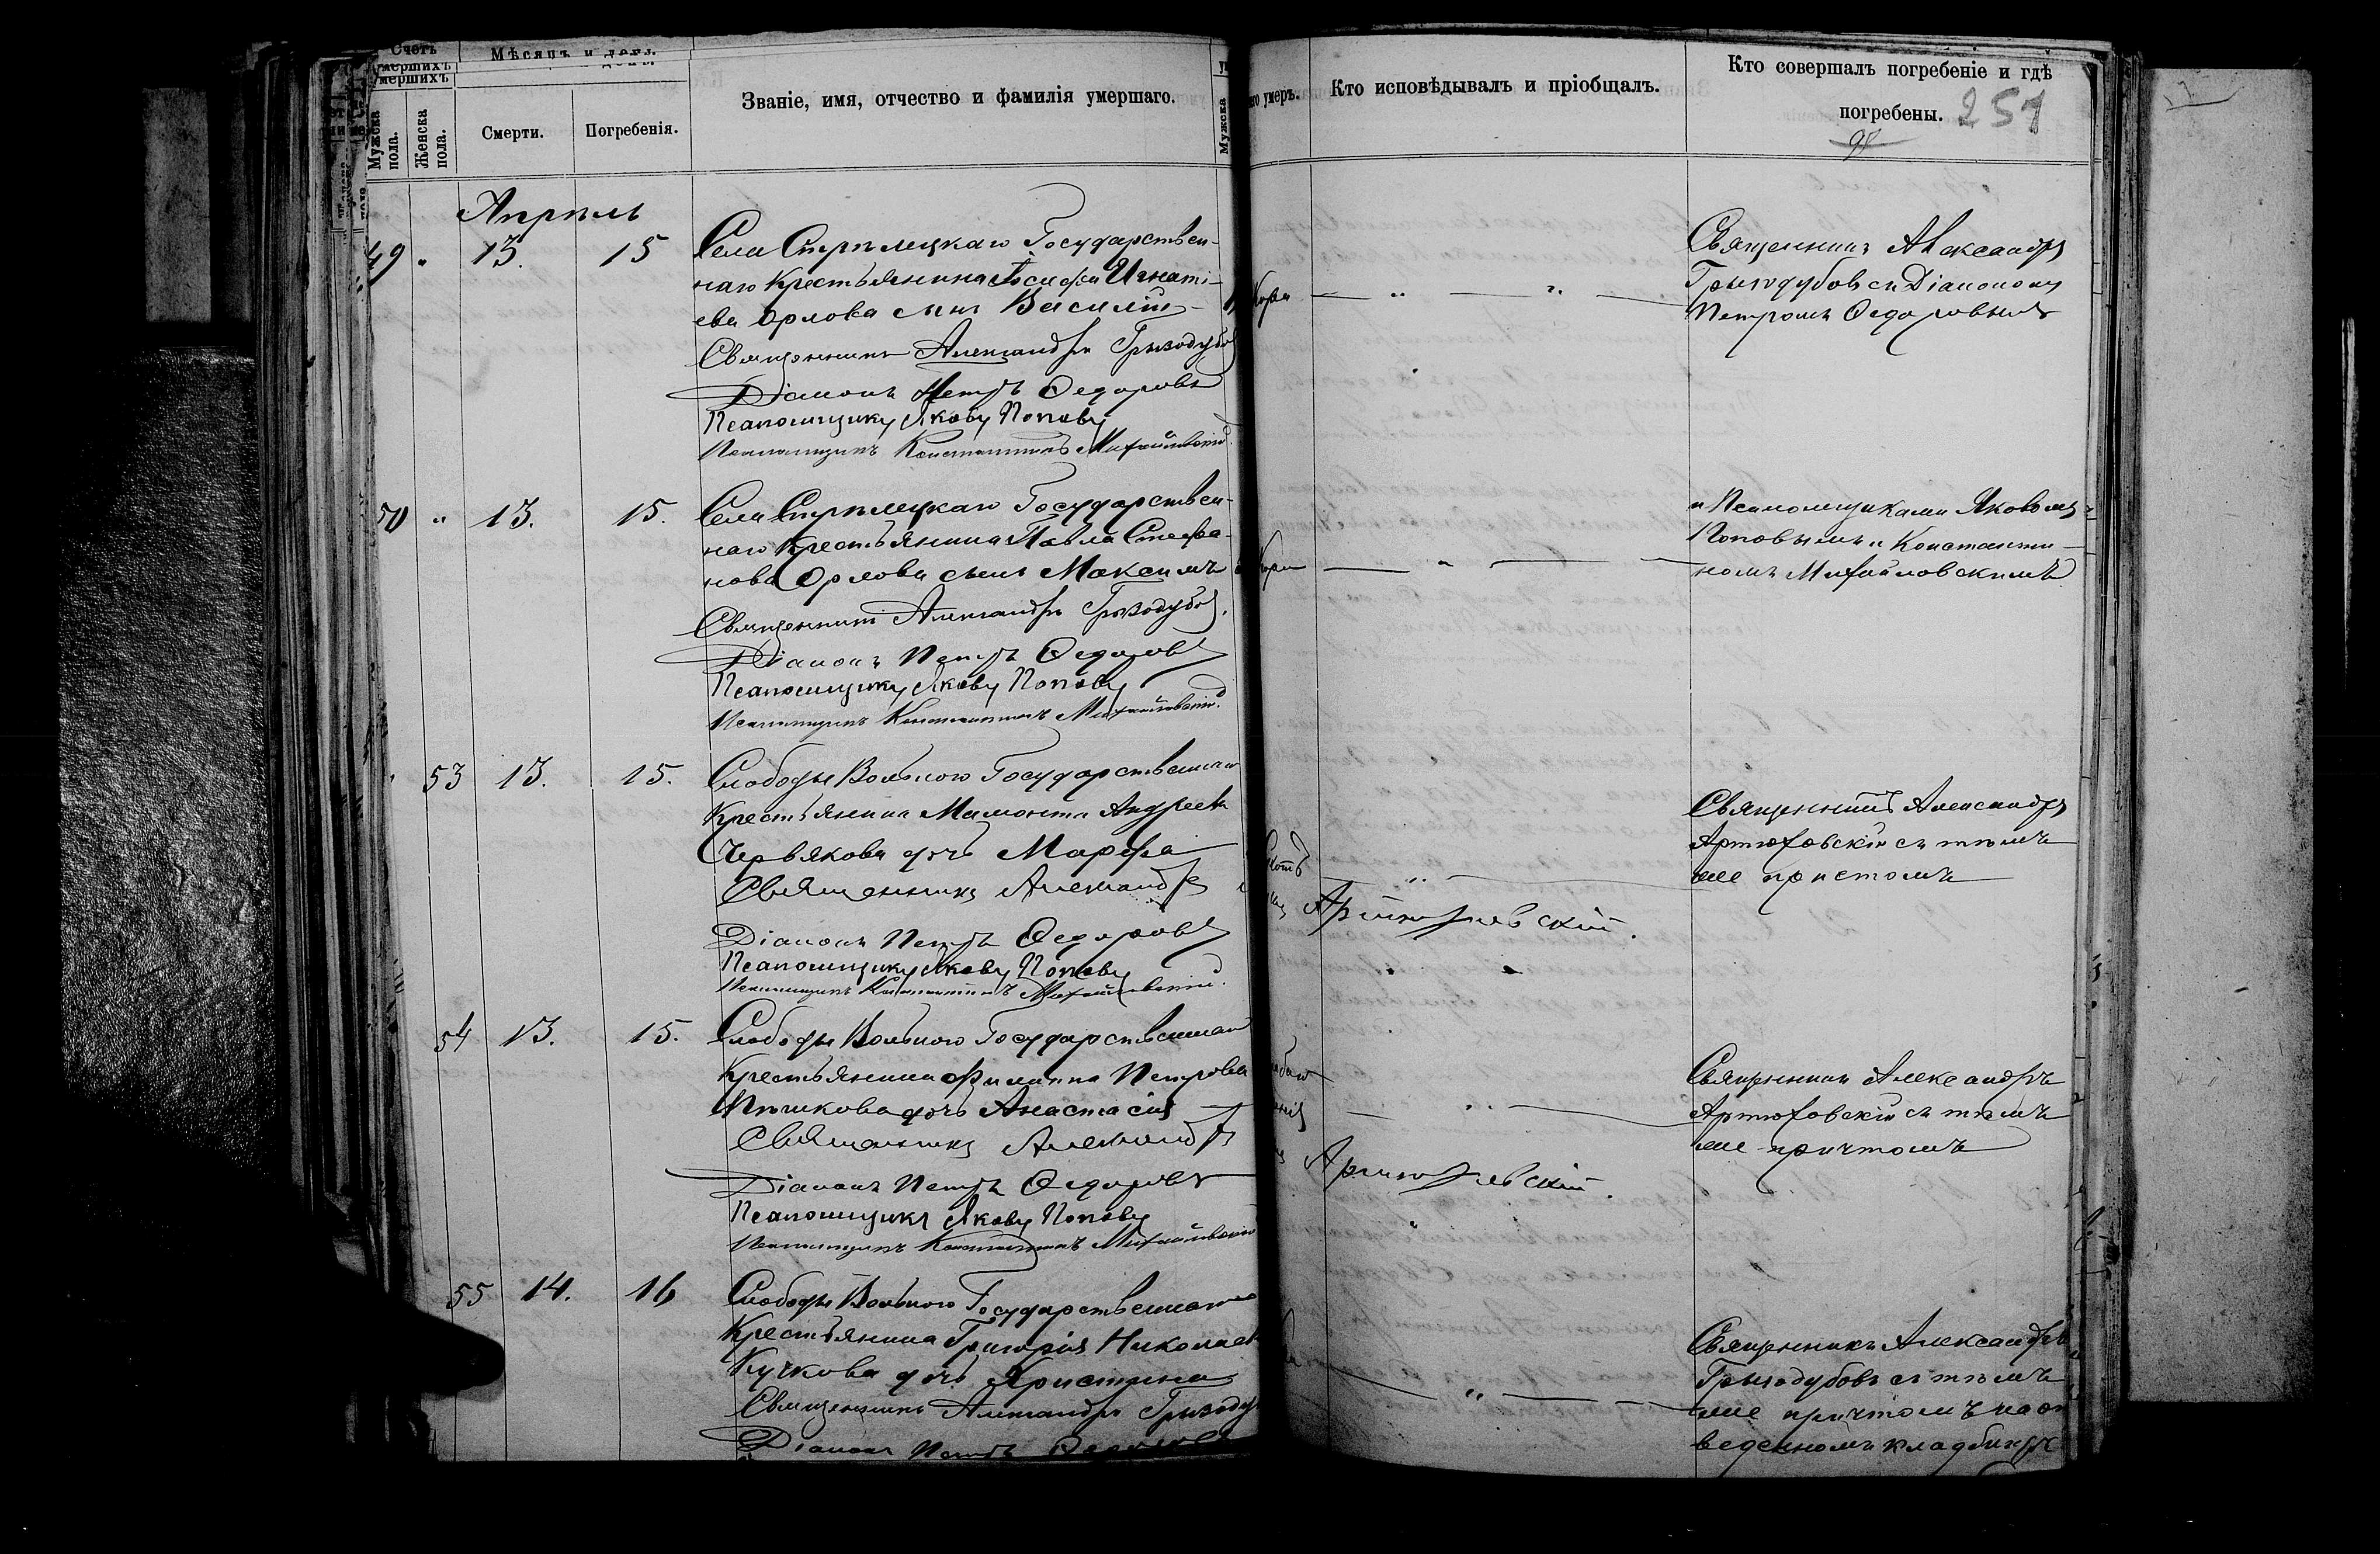 Счетъ умершихъ
Мѣсяцъ и день.
Званіе, имя, отчество и фамилія умершаго.
Мужска пола.
Женска пола.
Смерти.
Погребенія.
Мужска
его умеръ.
Кто исповѣдывалъ и пріобщалъ.
Кто совершалъ погребеніе и гдѣ
погребены.
251
Апрѣль
49 " 13. 15
Села Стрѣлецкаго Государствен-
наго Крестьянина Іосифа Игнаті-
ева Орлова сынъ Василій
Священникъ Александръ Грызодубов
Діаконъ Петръ Ѳедоровъ
Псаломщикъ Яковъ Поповъ
Псаломщикъ Константинъ Михайловскій.
Кори
Священникъ Александръ
Грызодубовъ съ Діакономъ
Петромъ Ѳедоровымъ
50 " 13. 15.
Села Стрѣлецкаго Государствен-
наго Крестьянина Павла Стефа-
нова Орлова сынъ Максимъ
Священникъ Александръ Грызодубов.
Діаконъ Петръ Ѳедоровъ
Псаломщикъ Яковъ Поповъ
Псаломщикъ Константинъ Михайловскій.
Кори
и Псаломщиками Яковомъ
Поповымъ и Константи-
номъ Михайловскимъ
53 13. 15.
Слободы Вольного Государственнаго
Крестьянина Мамонта Андреева
Червякова дочь Марфа
Священникъ Александръ
Артюховскій.
Діаконъ Петръ Ѳедоровъ
Псаломщикъ Яковъ Поповъ
Псаломщикъ Константинъ Михайловскій.
Священникъ Александръ
Артюховскій съ тѣмъ
же причтомъ
54 13. 15.
Слободы Вольного Государственнаго
Крестьянина Филиппа Петрова
дочь Анастасія
Священникъ Александръ
Артюховскій.
Діаконъ Петръ Ѳедоровъ
Псаломщикъ Яковъ Поповъ
Псаломщикъ Константинъ Михайловскій
Священникъ Александръ
Артюховскій съ тѣмъ
же причтомъ
55 14. 16
Слободы Вольного Государственнаго
Крестьянина Григорія Николаев
Кучкова дочь Христина
Священникъ Александръ Грызоду
Діаконъ Петръ Ѳедоровъ
Священникъ Александръ
Грызодубовъ съ тѣмъ
же причтомъ на от
веденномъ кладбищѣ